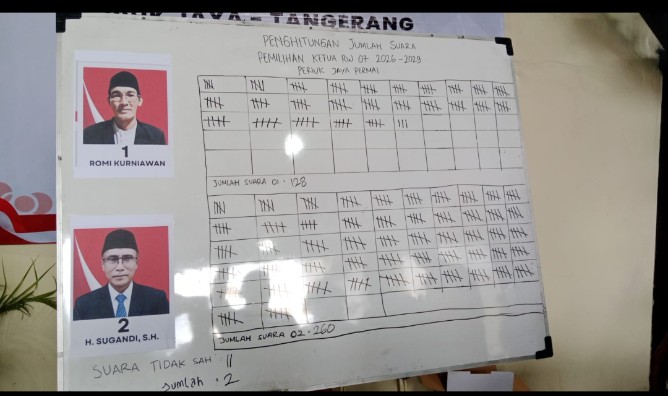 JAYA - TANGERANG
PENGHITUNGAN JUMLAH SUARA
PEMILIHAN KETUA RW 07 2026-2029
PERIUK JAYA PERMAI
1
ROMI KURNIAWAN
JUMLAH SUARA 01 . 128
2
H. SUGANDI, S.H.
JUMLAH SUARA 02 . 260
SUARA TIDAK SAH : ||
Jumlah . 2